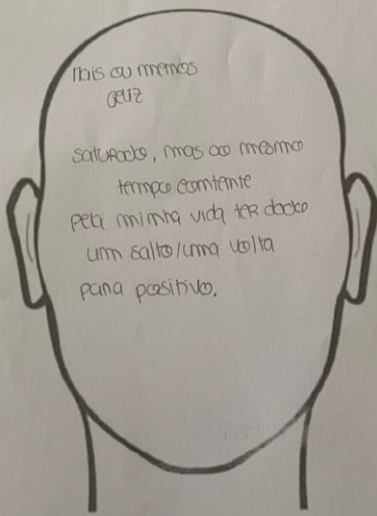 Mais ou menos
feliz
saturado, mas ao mesmo
tempo contente
pela minha vida ter dado
um salto/uma volta
para positivo.